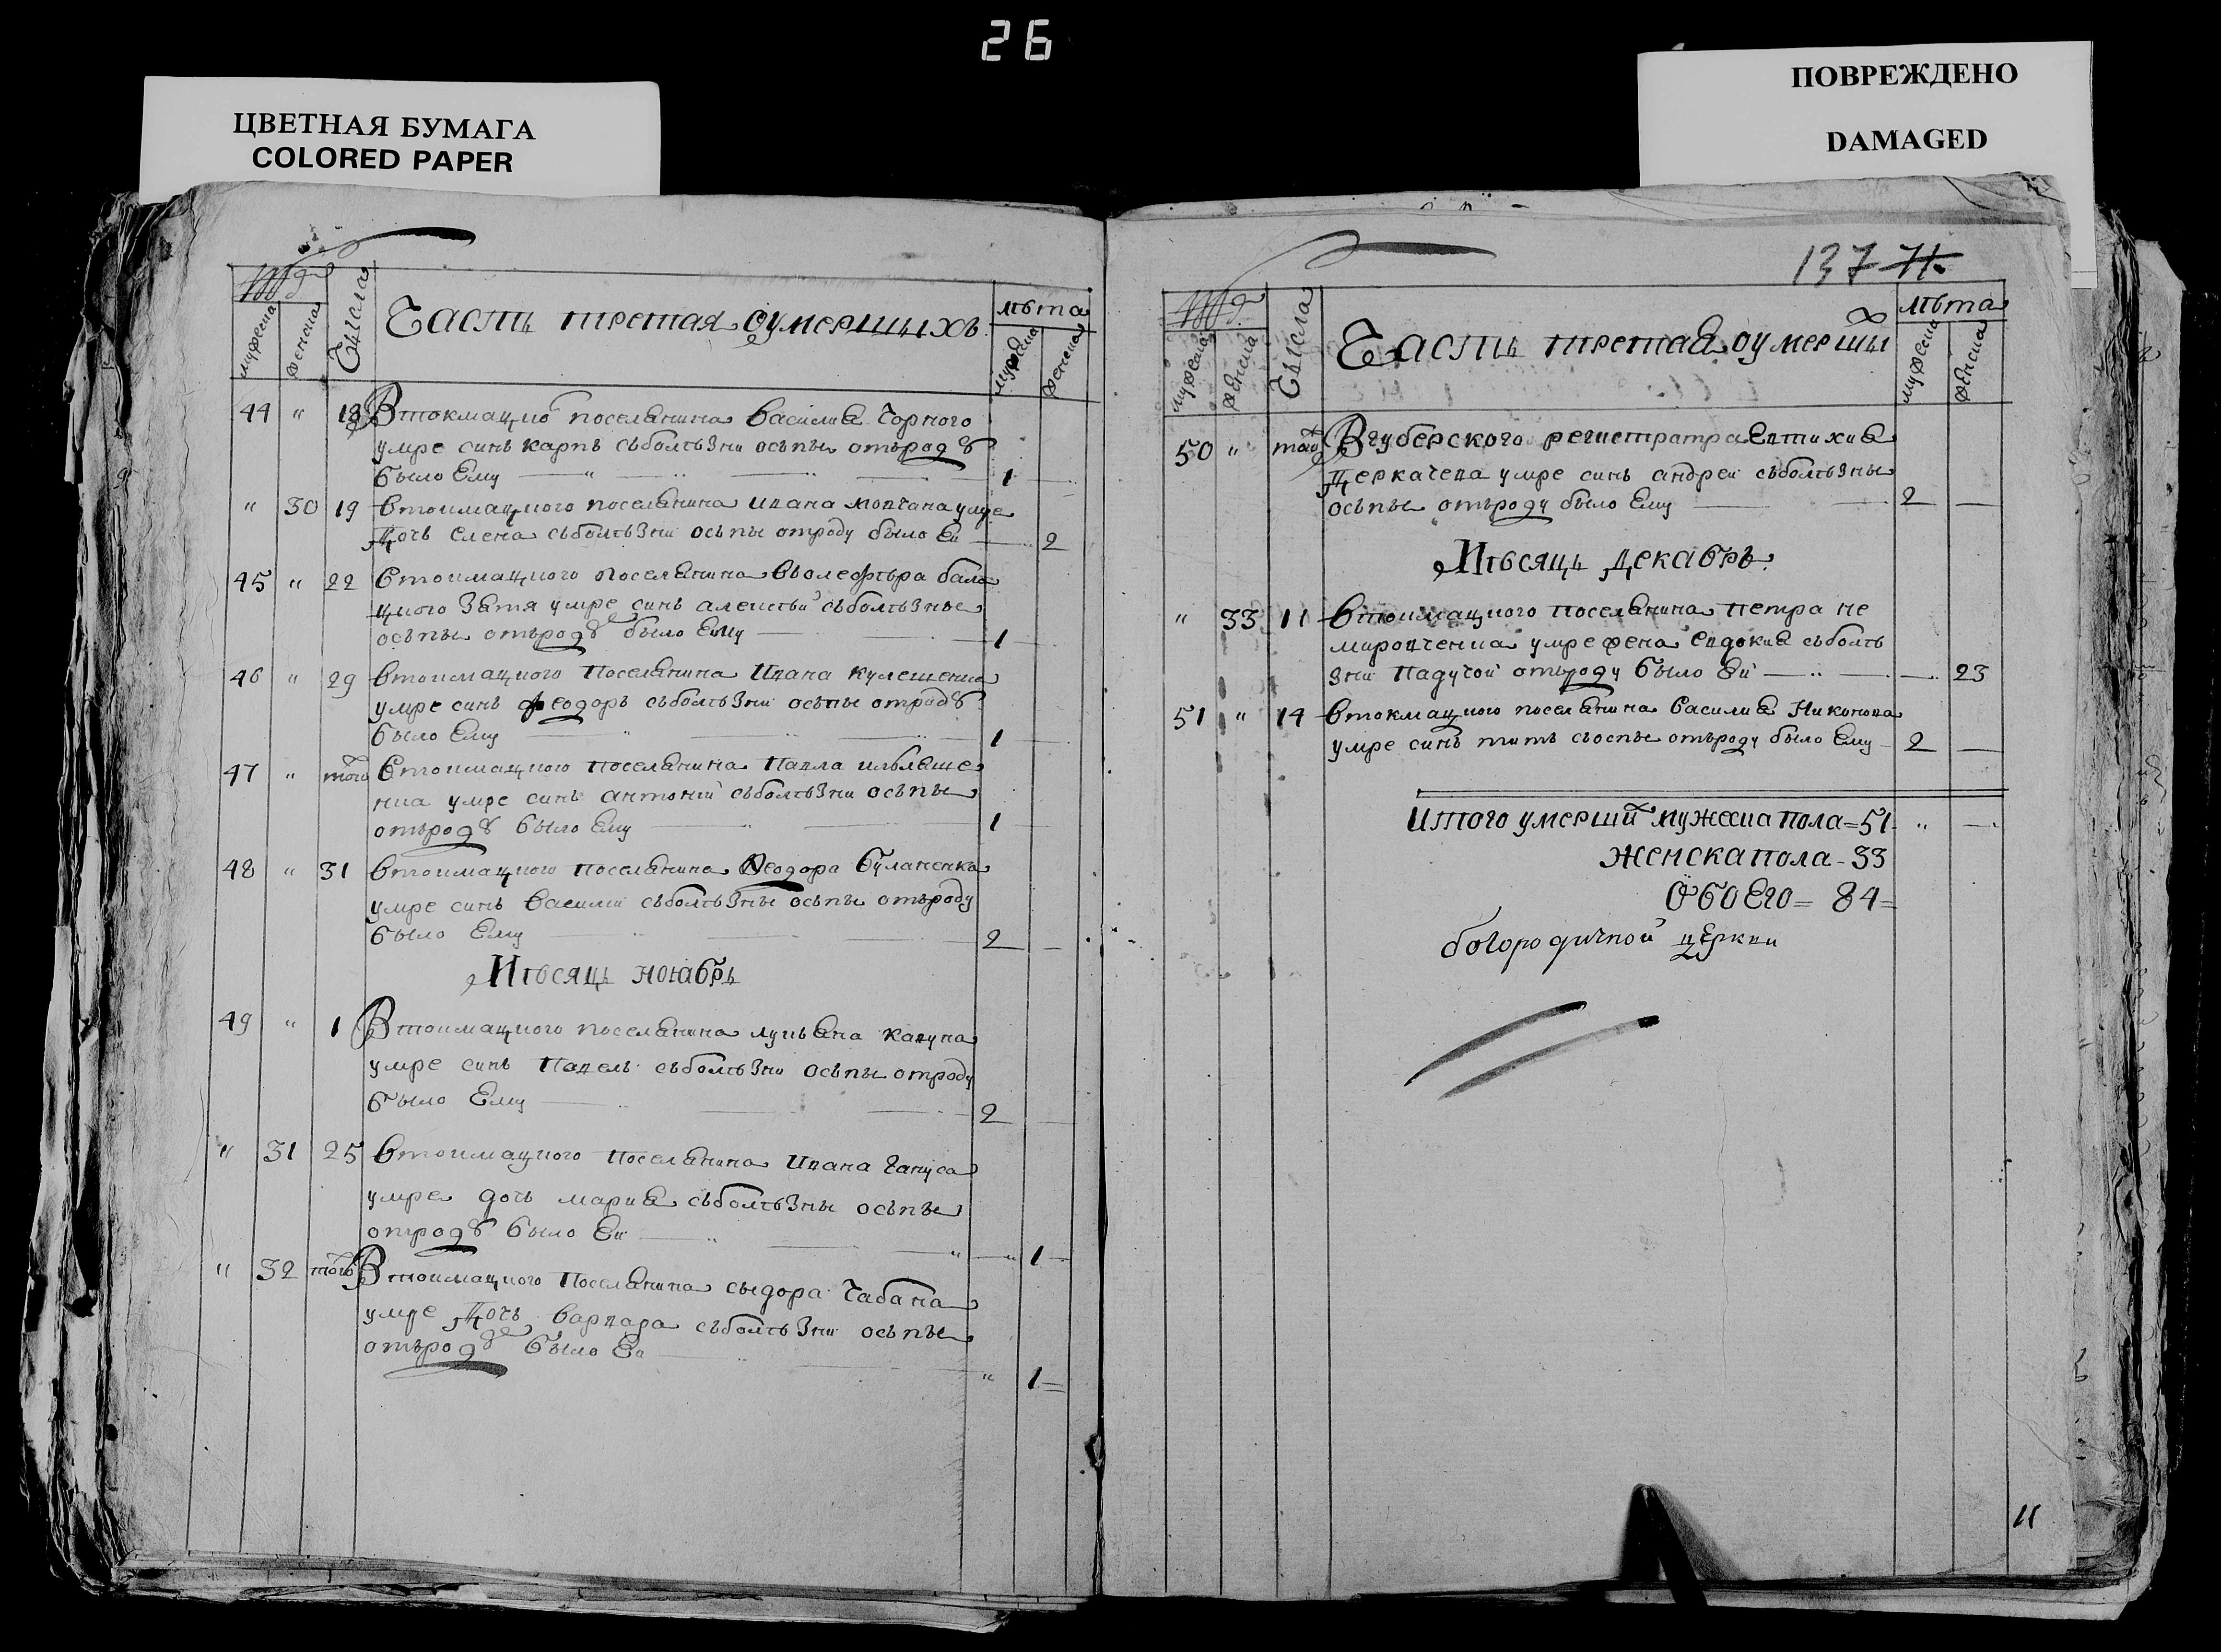 26
ЦВЕТНАЯ БУМАГА
COLORED PAPER
ПОВРЕЖДЕНО
DAMAGED
Числа
Часть третая оумершихъ
лѣта
мужеска женска
мужеска женска
44 " 18 Втокмацко поселянина василия Чорного
умре синъ карпъ съболѣзни осьпы отъроду
было Ему 1
" 30 19 втокмацкого поселянина ивана мовчана умре
дочь елена съболѣзни осьпы отроду было Ей 2
45 " 22 Втокмацкого поселянина
зятя умре синъ алексѣй съболѣзные
осьпы отъроду было Ему 1
46 " 29 втокмацкого поселянина Ивана кулешенка
умре синъ феодоръ съболѣзни осьпы отроду
было Ему 1
47 " того Втокмацкого поселянина Павла ильяше
нка умре синъ антоній съболѣзни осьпы
отъроду было Ему 1
48 " 31 втокмацкого поселянина Ѳеодора буланенка
умре синъ василий съболѣзны осьпы отъроду
было Ему 2
Мѣсяць ноябрь
49 " 1 Втокмацкого поселянина лукьяна кавуна
умре синъ Павелъ съболѣзни осьпы отроду
было Ему 2
" 31 25 втокмацкого поселянина Ивана Гануса
умре дочь мария съболѣзны осьпы
отроду было Ей " 1
" 32 того Втокмацкого Поселянина сыдора Чабана
умре дочь варвара съболѣзни осьпы
отъроду было Ей
" 1
137 71.
Числа
Часть третая оумершы
х
лѣта
мужеска женска
мужеска женска
50 " того Вгуберского регистратра Евтихия
Деркачева умре синъ андрей съболѣзны
осьпы отъроду было Ему 2
Мѣсяць Декабрь
" 33 11 втокмацкого поселянина петра не
мировченка умре жена евдокия съболѣ
зни падучой отъроду было Ей 23
51 " 14 втокмацкого поселянина василия Никонова
умре синъ титъ съоспы отъроду было Ему 2
итого умершихъ мужеска пола = 51
женска пола - 33
обоего = 84 =
богородичной церкви
11